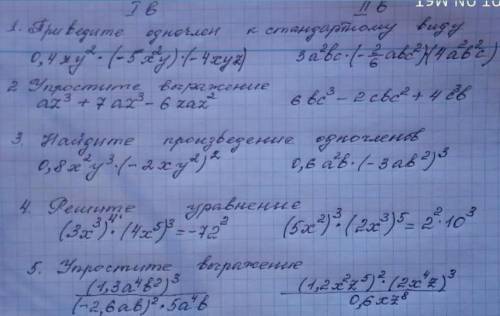 I в II в
1. Приведите одночлен к стандартному виду
0,4xy²·(-5x²y)(-4xyz) 3a²bc·(-2/6 abc²)(4a²b²c)
2 Упростите выражение
az³ + 7az³ - 6zaz² 6bc³ - 2cbc² + 4c³b
3. Найдите произведение одночленов
0,8x²y³·(-2xy²)² 0,6a²b·(-3ab²)³
4. Решите уравнение
(3x³)⁴·(4x⁵)³ = -72² (5x²)³·(2x³)⁵ = 2²·10³
5. Упростите выражение
(1,3a⁴b²)³ / (-2,6ab)²·5a⁴b (1,2x²z⁵)²·(2x⁴z)³ / 0,6xz⁸